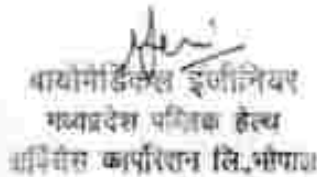 बायोमेडिकल इंजीनियर
मध्यप्रदेश पब्लिक हेल्थ
सर्विसेस कार्पोरेशन लि.,भोपाल